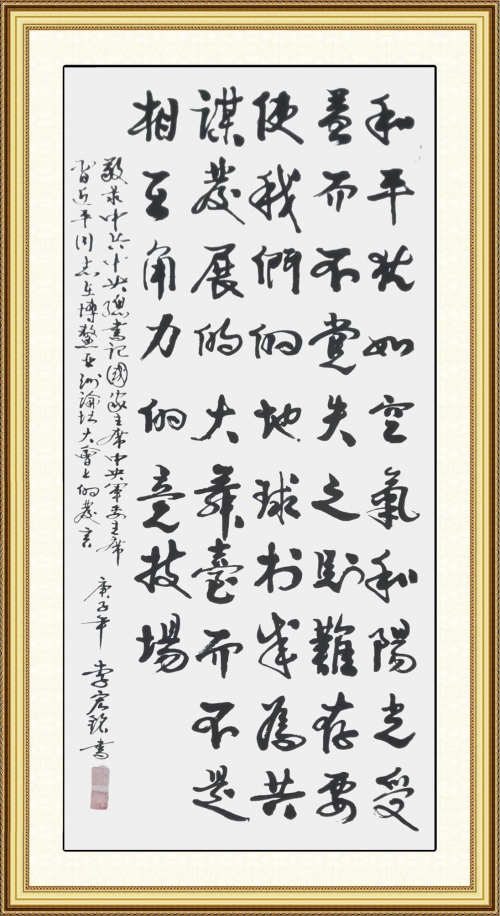 和平犹如空氣和陽光受
益而不觉失之则難存要
使我們的地球村成為共
謀發展的大舞臺而不是
相互角力的竞技場
敬录中共中央總書記國家主席中央军委主席
習近平同志在博鳌亚洲論坛大會上的發言 庚子年 李宏銘書